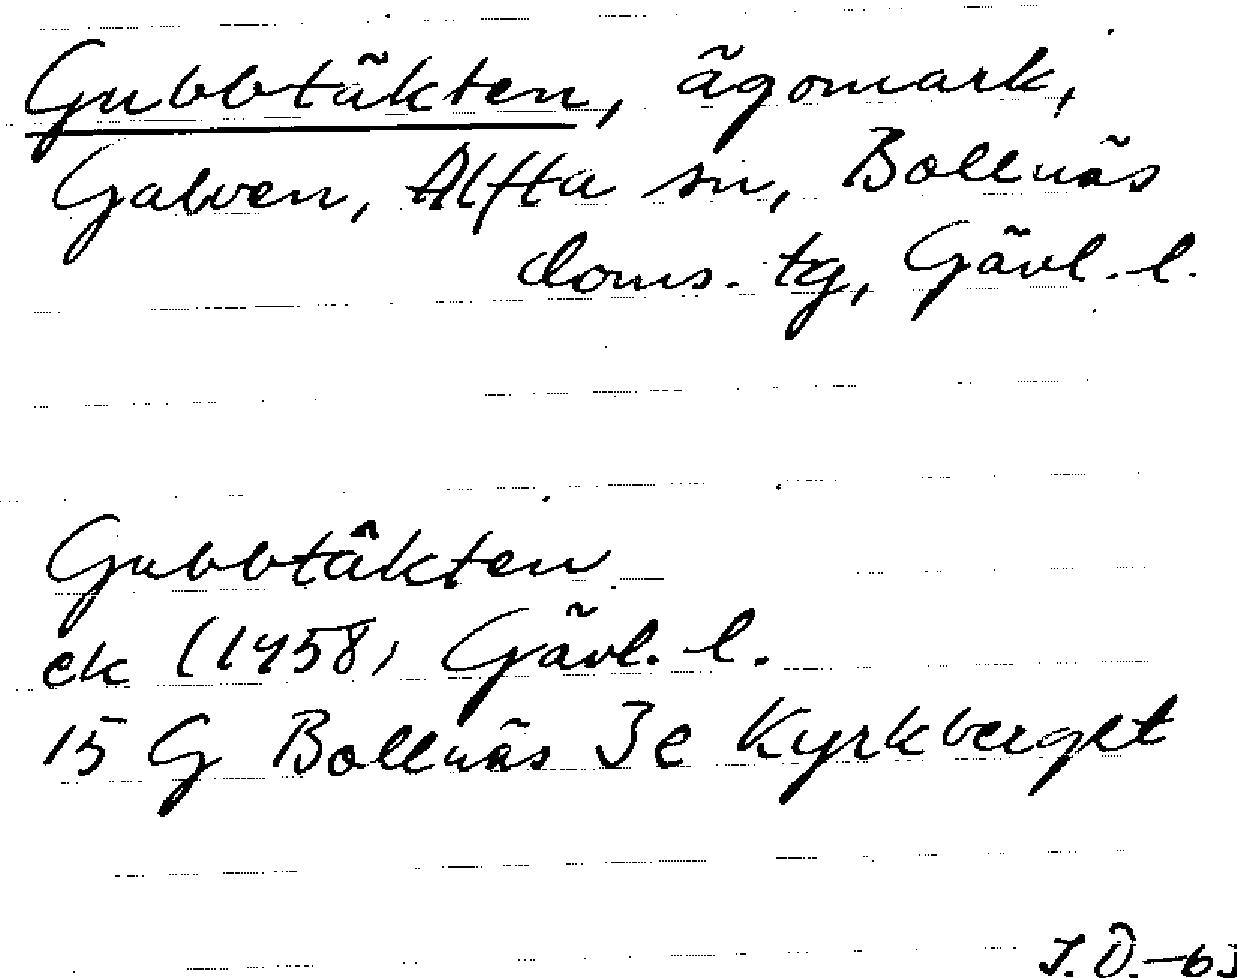 Gubbtäkten, ägomark,
Galven, Alfta sn, Bollnäs
doms. tg, Gävl. l.
Gubbtäkten
ek (1958) Gävl. l.
15 G Bollnäs 3e Kyrkberget